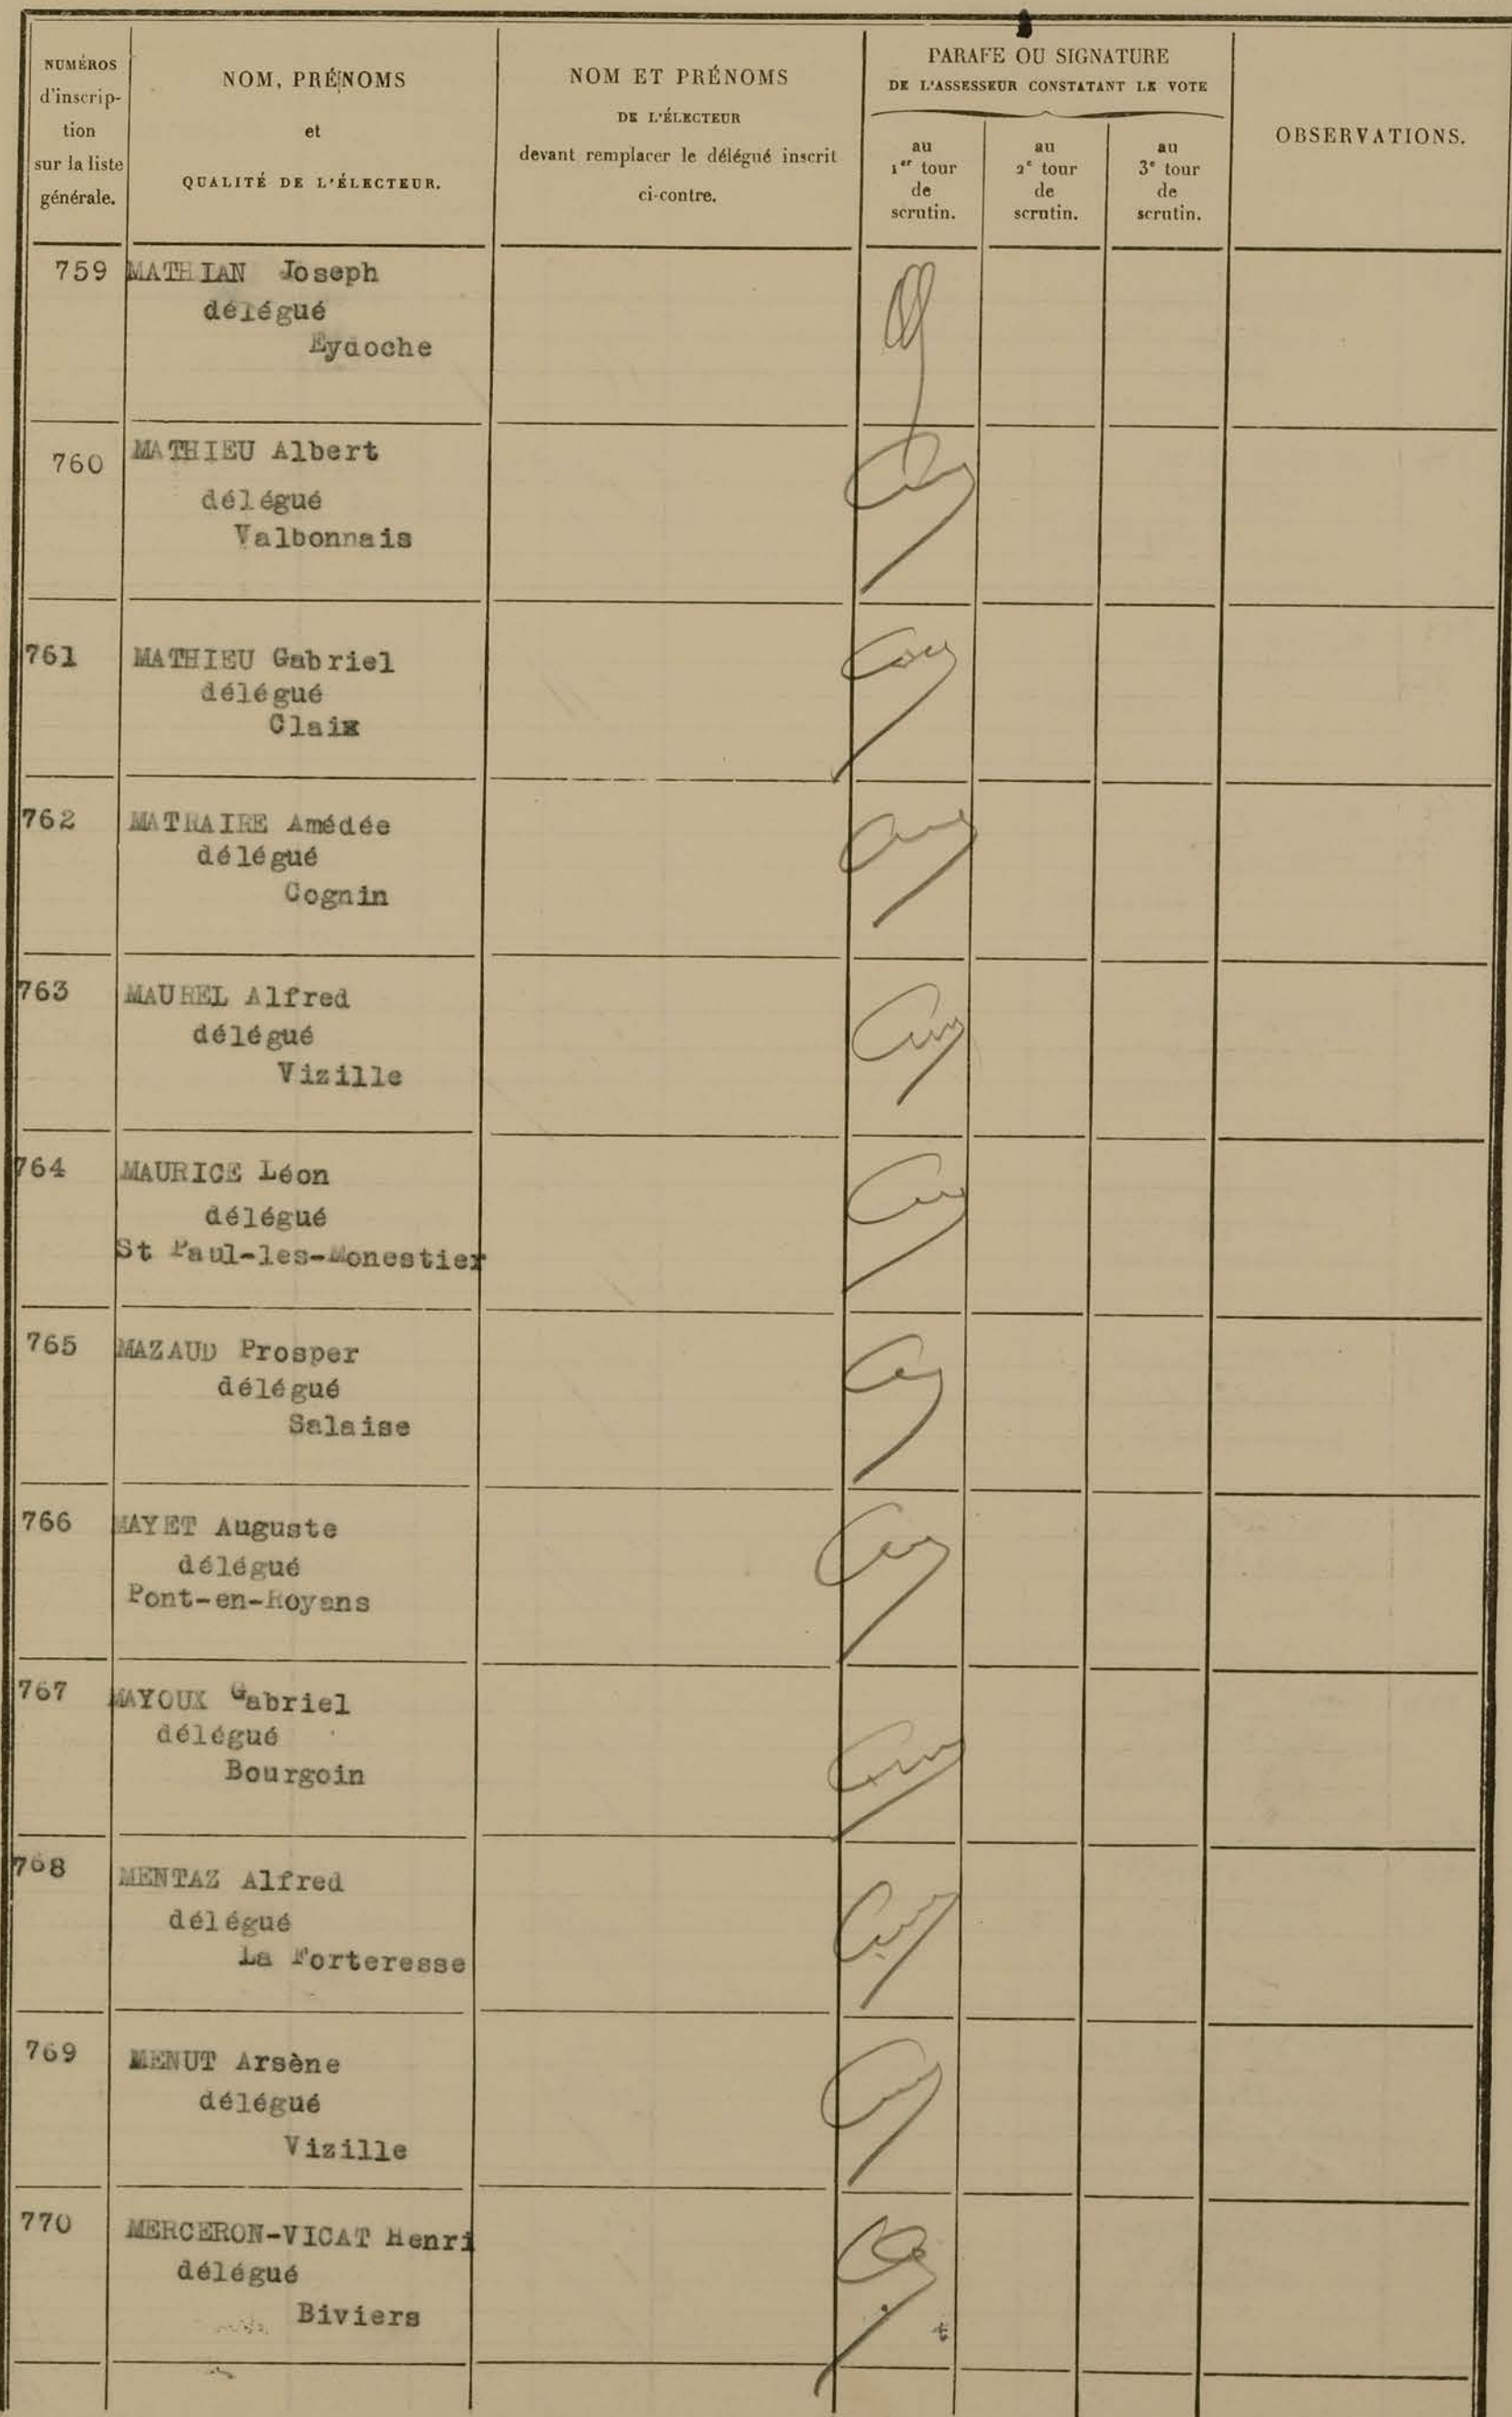 NUMÉROS
d'inscrip-
tion
sur la liste
générale.
NOM, PRÉNOMS
et
QUALITÉ DE L'ÉLECTEUR.
NOM ET PRÉNOMS
DE L'ÉLECTEUR
devant remplacer le délégué inscrit
ci-contre.
PARAFE OU SIGNATURE
DE L'ASSESSEUR CONSTATANT LE VOTE
au
1er tour
de
scrutin.
au
2e tour
de
scrutin.
au
3e tour
de
scrutin.
OBSERVATIONS.
759 MATHIAN Joseph
délégué
Eydoche
760 MATHIEU Albert
délégué
Valbonnais
761 MATHIEU Gabriel
délégué
Claix
762 MATRAIRE Amédée
délégué
Cognin
763 MAUREL Alfred
délégué
Vizille
764 MAURICE Léon
délégué
St Paul-les-Monestier
765 MAZAUD Prosper
délégué
Salaise
766 MAYET Auguste
délégué
Pont-en-Royans
767 MAYOUX Gabriel
délégué
Bourgoin
768 MENTAZ Alfred
délégué
La Forteresse
769 MENUT Arsène
délégué
Vizille
770 MERCERON-VICAT Henri
délégué
Biviers